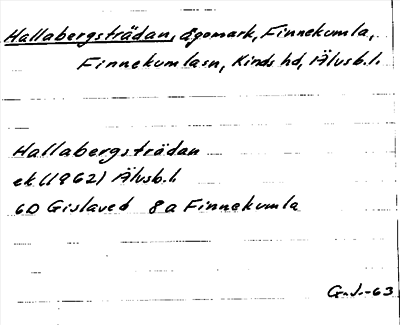 Hallabergsträdan, ägomark, Finnekumla,
Finnekumlasn, Kinds hd, Älvsb.l.
Hallabergsträdan
ek (1962) Älvsb.l.
6D Gislaved 8a Finnekumla
G.J.-63